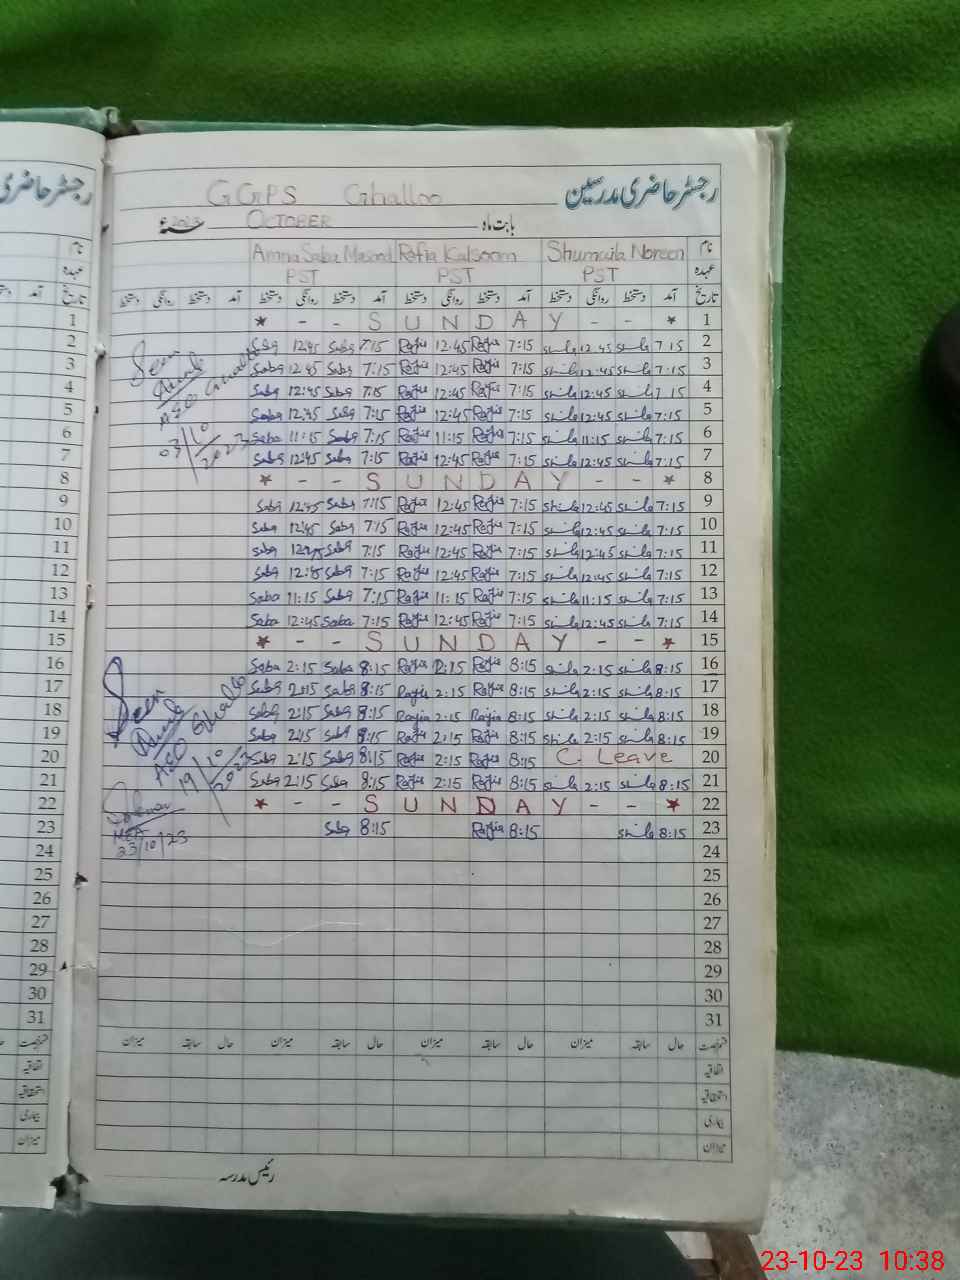 رجسٹر حاضری مدرسین
GGPS Ghalloo
بابت ماہ OCTOBER 2023 سنہ ء
نام Shumaila Noreen Rafia Kalsoom Amna Saba Masood
عہدہ PST PST PST
تاریخ آمد دستخط روانگی دستخط آمد دستخط روانگی دستخط آمد دستخط روانگی دستخط آمد دستخط روانگی دستخط
* - - S U N D A Y - - * 1
Saba 12:45 Saba 7:15 Rafia 12:45 Rafia 7:15 12:45 7:15 2
Saba 12:45 Saba 7:15 Rafia 12:45 Rafia 7:15 12:45 7:15 3
Saba 12:45 Saba 7:15 Rafia 12:45 Rafia 7:15 12:45 7:15 4
Saba 12:45 Saba 7:15 Rafia 12:45 Rafia 7:15 12:45 7:15 5
Saba 11:15 Saba 7:15 Rafia 11:15 Rafia 7:15 11:15 7:15 6
Saba 12:45 Saba 7:15 Rafia 12:45 Rafia 7:15 12:45 7:15 7
* - - S U N D A Y - - * 8
Saba 12:45 Saba 7:15 Rafia 12:45 Rafia 7:15 12:45 7:15 9
Saba 12:45 Saba 7:15 Rafia 12:45 Rafia 7:15 12:45 7:15 10
Saba 12:45 Saba 7:15 Rafia 12:45 Rafia 7:15 12:45 7:15 11
Saba 12:45 Saba 7:15 Rafia 12:45 Rafia 7:15 12:45 7:15 12
Saba 11:15 Saba 7:15 Rafia 11:15 Rafia 7:15 11:15 7:15 13
Saba 12:45 Saba 7:15 Rafia 12:45 Rafia 7:15 12:45 7:15 14
* - - S U N D A Y - - * 15
Saba 2:15 Saba 8:15 Rafia 2:15 Rafia 8:15 2:15 8:15 16
Saba 2:15 Saba 8:15 Rafia 2:15 Rafia 8:15 2:15 8:15 17
Saba 2:15 Saba 8:15 Rafia 2:15 Rafia 8:15 2:15 8:15 18
Saba 2:15 Saba 8:15 Rafia 2:15 Rafia 8:15 2:15 8:15 19
Saba 2:15 Saba 8:15 Rafia 2:15 Rafia 8:15 C. Leave 20
Saba 2:15 Saba 8:15 Rafia 2:15 Rafia 8:15 2:15 8:15 21
* - - S U N D A Y - - * 22
Saba 8:15 Rafia 8:15 8:15 23
24
25
26
27
28
29
30
31
Seen
AEO Ghalloo
03/10/2023
Seen
AEO Ghalloo
19/10/2023
MEA
23/10/23
حال سابقہ میزان حال سابقہ میزان حال سابقہ میزان حال سابقہ میزان
اتفاقیہ
استحقاقیہ
بیماری
میزان
رئیس مدرسہ
رجسٹر حاضری
نام
عہدہ
تاریخ آمد
1
2
3
4
5
6
7
8
9
10
11
12
13
14
15
16
17
18
19
20
21
22
23
24
25
26
27
28
29
30
31
اتفاقیہ
استحقاقیہ
بیماری
میزان
23-10-23 10:38